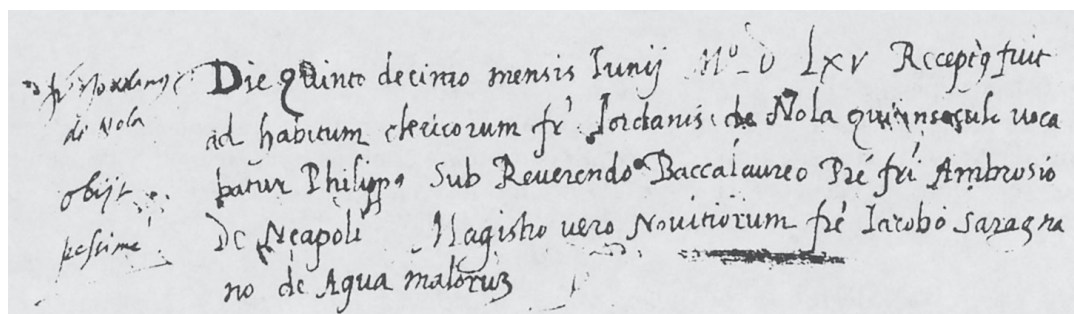 fr Jordanus
di Nola
obijt
pessime
Die Quinto decimo mensis Iunij Mº D Lxv Receptq fuit
ad habitum clericorum fr Jordanis de Nola qui in seculo voca
batur Philippq Sub Reverendo Baccalaureo Pre fri Ambrosio
De Neapoli Magistro vero Novitiorum fre Iacobo Saragna
no de Aqua malorux